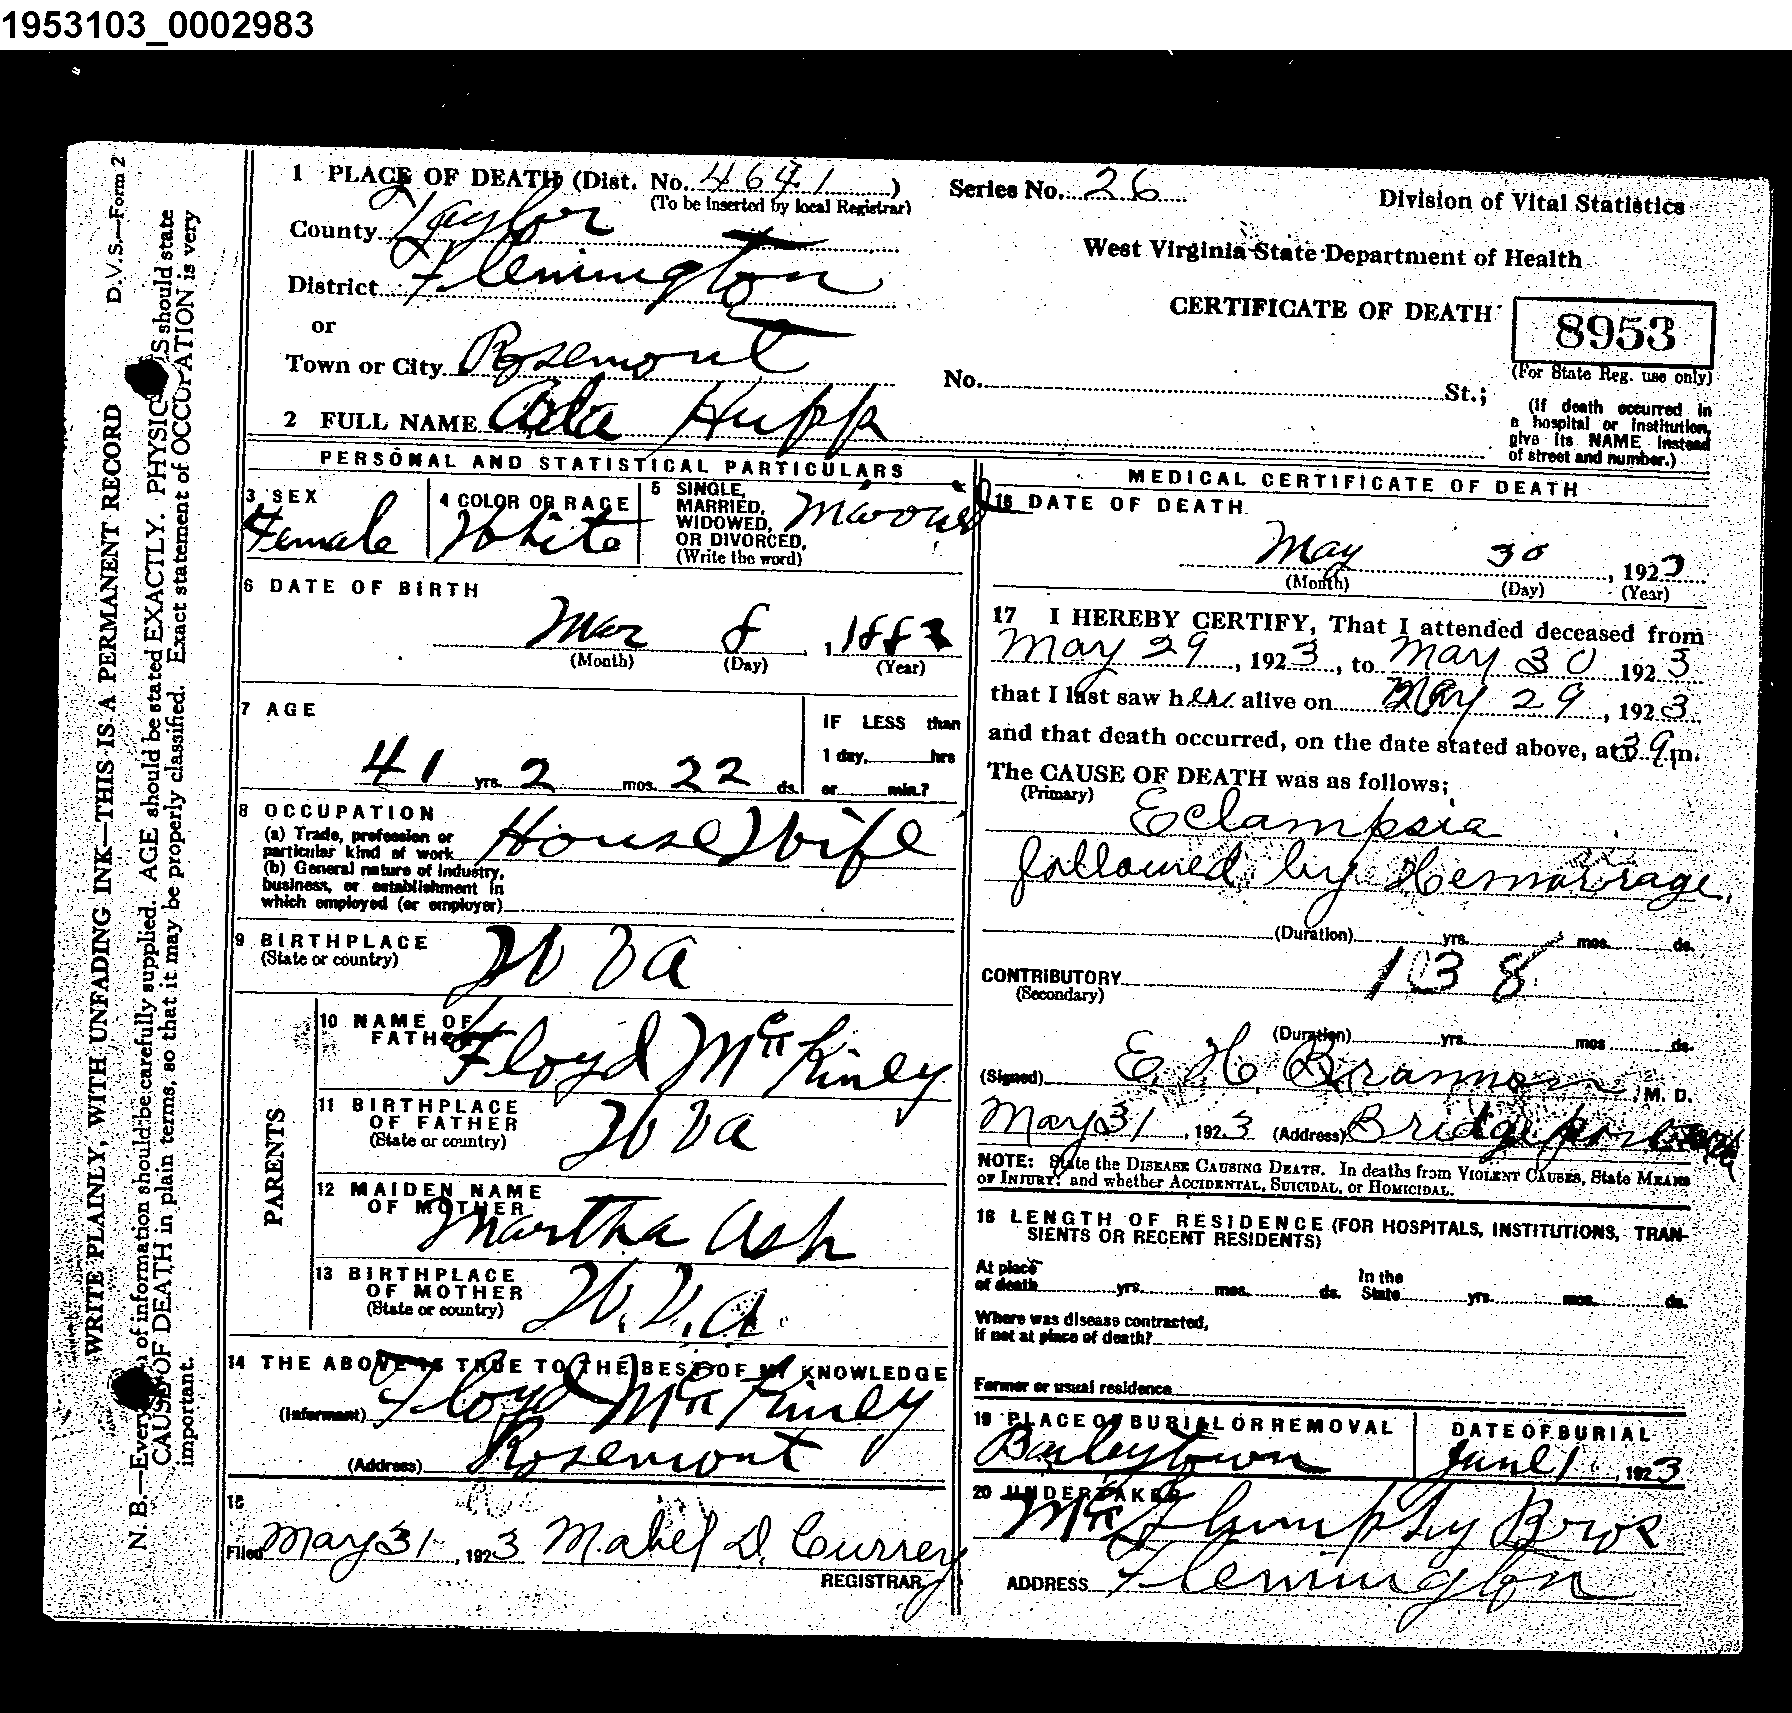 1953103_0002983
1 PLACE OF DEATH (Dist. No. 4641)
(To be inserted by local Registrar)
Series No. 26
Division of Vital Statistics
County Taylor
West Virginia State Department of Health
District Flemington
CERTIFICATE OF DEATH
8953
(For State Reg. use only)
or
Town or City Rosemont
No. St.;
(If death occurred in
a hospital or institution,
give its NAME instead
of street and number.)
2 FULL NAME Ada Hupp
PERSONAL AND STATISTICAL PARTICULARS
3 SEX
Female
4 COLOR OR RACE
White
5 SINGLE,
MARRIED,
WIDOWED,
OR DIVORCED,
(Write the word)
Married
6 DATE OF BIRTH
Mar 8, 1882
(Month) (Day) (Year)
7 AGE
41 yrs. 2 mos. 22 ds.
IF LESS than
1 day, hrs
or min.?
8 OCCUPATION
(a) Trade, profession or
particular kind of work House Wife
(b) General nature of industry,
business, or establishment in
which employed (or employer)
9 BIRTHPLACE
(State or country)
W Va
PARENTS
10 NAME OF
FATHER
Floyd McKinley
11 BIRTHPLACE
OF FATHER
(State or country)
W Va
12 MAIDEN NAME
OF MOTHER
Martha Ash
13 BIRTHPLACE
OF MOTHER
(State or country)
W. V. a
14 THE ABOVE IS TRUE TO THE BEST OF MY KNOWLEDGE
(Informant) Floyd McKinley
(Address) Rosemont
15
Filed May 31, 1923 Mabel D. Currey
REGISTRAR
MEDICAL CERTIFICATE OF DEATH
16 DATE OF DEATH
May 30, 1923
(Month) (Day) (Year)
17 I HEREBY CERTIFY, That I attended deceased from
May 29, 1923, to May 30 1923
that I last saw her alive on May 29, 1923
and that death occurred, on the date stated above, at m.
The CAUSE OF DEATH was as follows;
(Primary)
Eclampsia
followed by Hemorrage
(Duration) yrs. mos. ds.
CONTRIBUTORY
(Secondary)
138
(Duration) yrs. mos ds.
(Signed) E. H. Brannon, M. D.
May 31, 1923 (Address) Bridgeport
NOTE: State the DISEASE CAUSING DEATH. In deaths from VIOLENT CAUSES, State MEANS
OF INJURY; and whether ACCIDENTAL, SUICIDAL, or HOMICIDAL.
18 LENGTH OF RESIDENCE (FOR HOSPITALS, INSTITUTIONS, TRAN-
SIENTS OR RECENT RESIDENTS)
At place
of death yrs. mos. ds.
In the
State yrs. mos. ds.
Where was disease contracted,
if not at place of death?
Former or usual residence
19 PLACE OF BURIAL OR REMOVAL
Baileytown
DATE OF BURIAL
June 1, 1923
20 UNDERTAKER
Bros
ADDRESS Flemington
D.V.S.—Form 2
WRITE PLAINLY, WITH UNFADING INK—THIS IS A PERMANENT RECORD
N. B.—Every of information should be carefully supplied. AGE should be stated EXACTLY. PHYSIC S should state
CAUSE OF DEATH in plain terms, so that it may be properly classified. Exact statement of OCCUPATION is very
important.